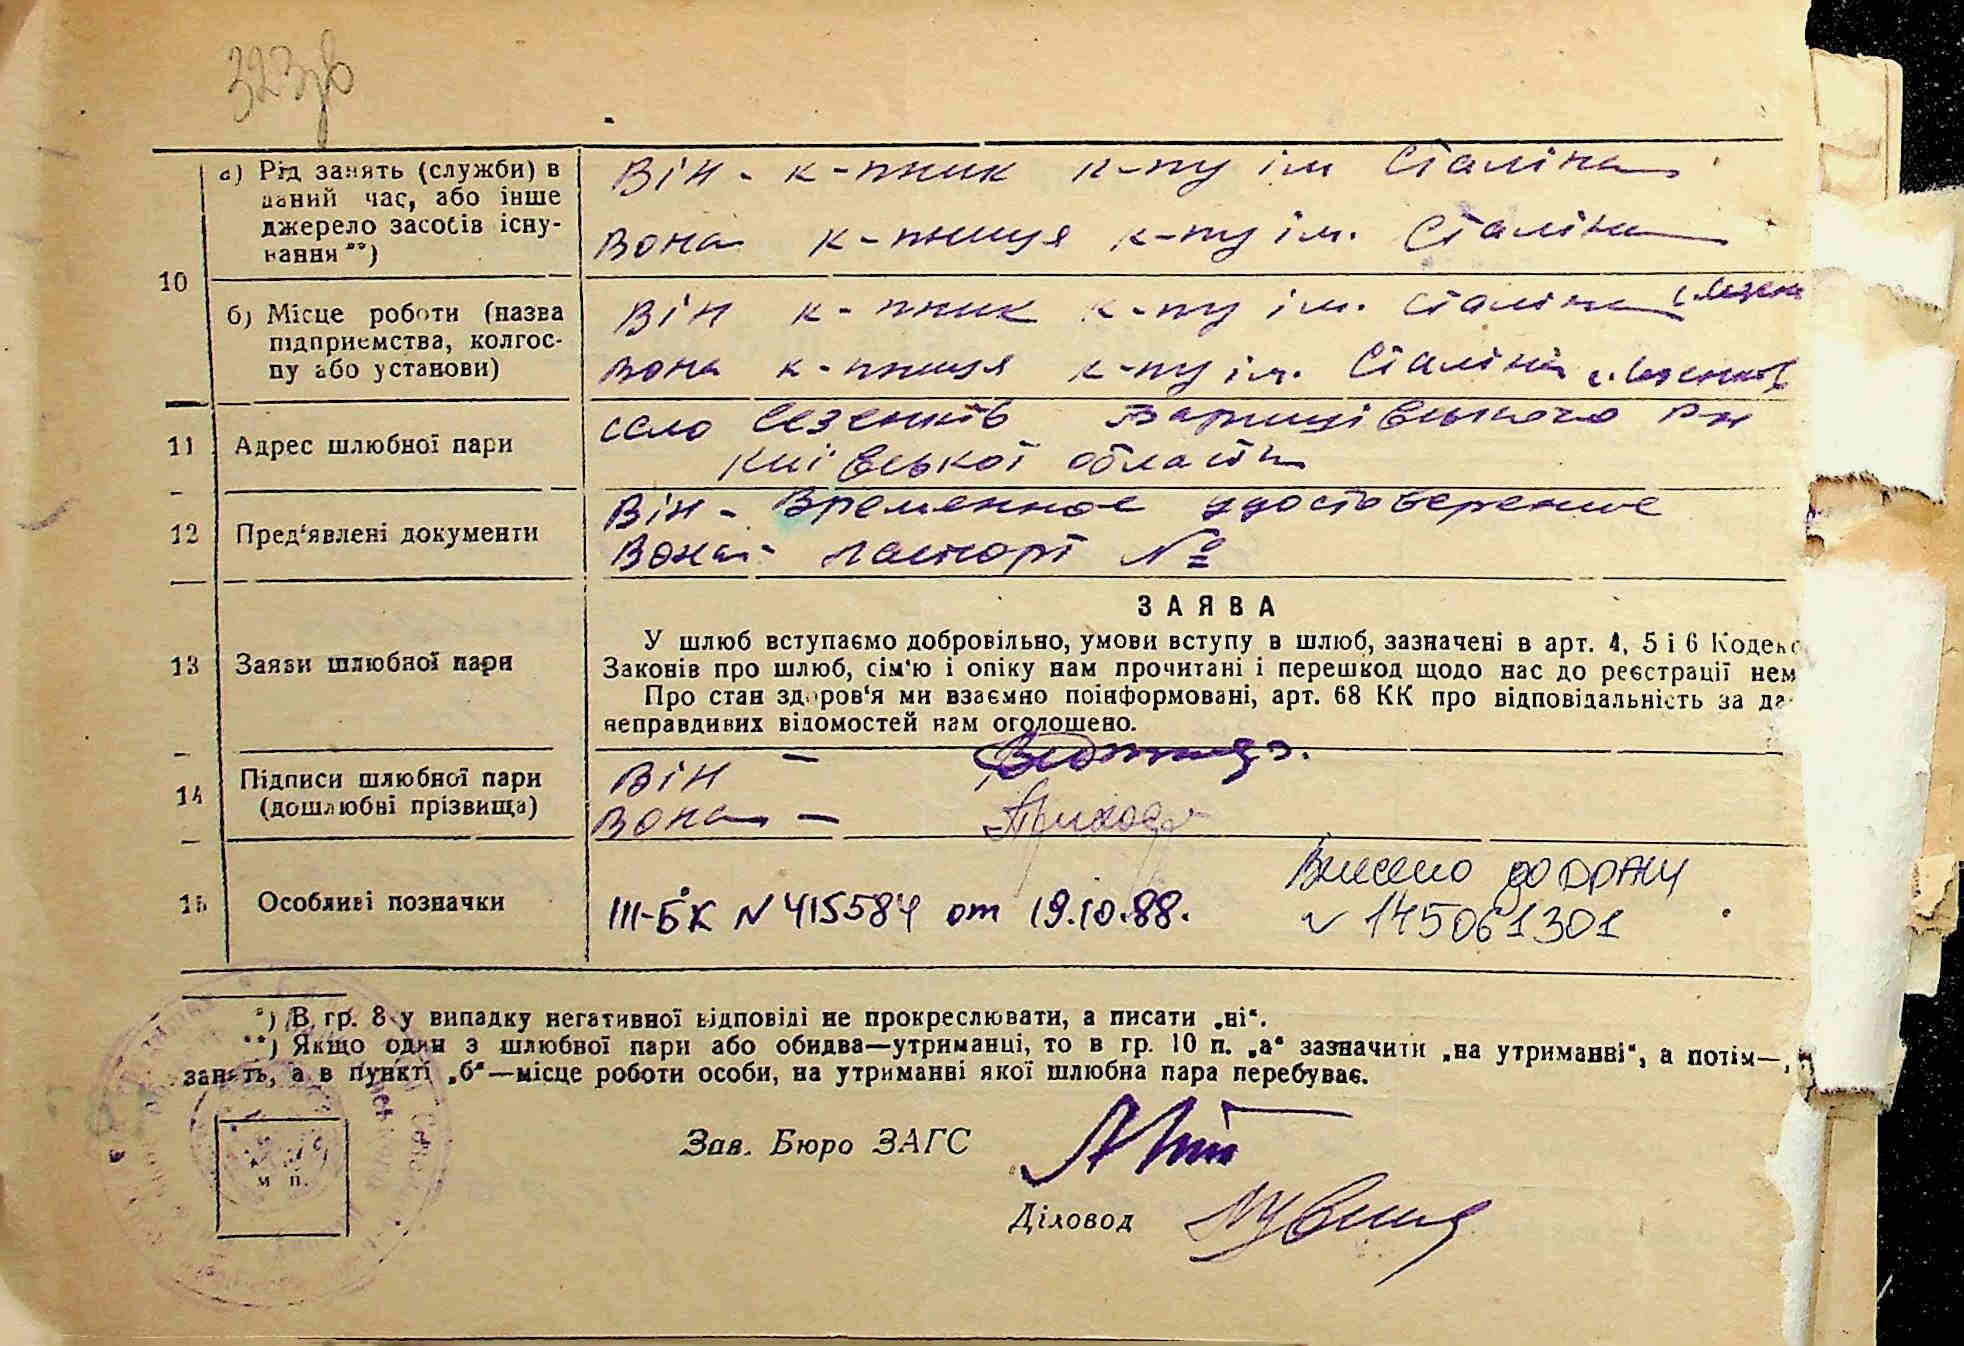 323зв
а) Рід занять (служби) в даний час, або інше джерело засобів існування**)
Він - к-пник к-пу ім Сталіна
Вона к-пниця к-пу ім. Сталіна
10
б) Місце роботи (назва підприємства, колгоспу або установи)
Він к-пник к-пу ім. Сталіна
Вона к-пниця к-пу ім. Сталіна
11 Адрес шлюбної пари
село Лезенків Баришівського Рн
Київської області
12 Пред'явлені документи
Він - Временное удостоверение
Вона - паспорт №
13 Заяви шлюбної пари
ЗАЯВА
У шлюб вступаємо добровільно, умови вступу в шлюб, зазначені в арт. 4, 5 і 6 Кодекс
Законів про шлюб, сім'ю і опіку нам прочитані і перешкод щодо нас до реєстрації нем
Про стан здоров'я ми взаємно поінформовані, арт. 68 КК про відповідальність за да
неправдивих відомостей нам оголошено.
14 Підписи шлюбної пари (дошлюбні прізвища)
Він -
Вона - Приходь
15 Особливі позначки
III-БК N 415584 от 19.10.88.
Внесено до ДРАЦ
N 145061301
*) В гр. 8 у випадку негативної відповіді не прокреслювати, а писати „ні“.
**) Якщо один з шлюбної пари або обидва—утриманці, то в гр. 10 п. „а“ зазначити „на утриманні“, а потім—,
занять, а в пункті „б“—місце роботи особи, на утриманні якої шлюбна пара перебуває.
м п.
Зав. Бюро ЗАГС
Діловод